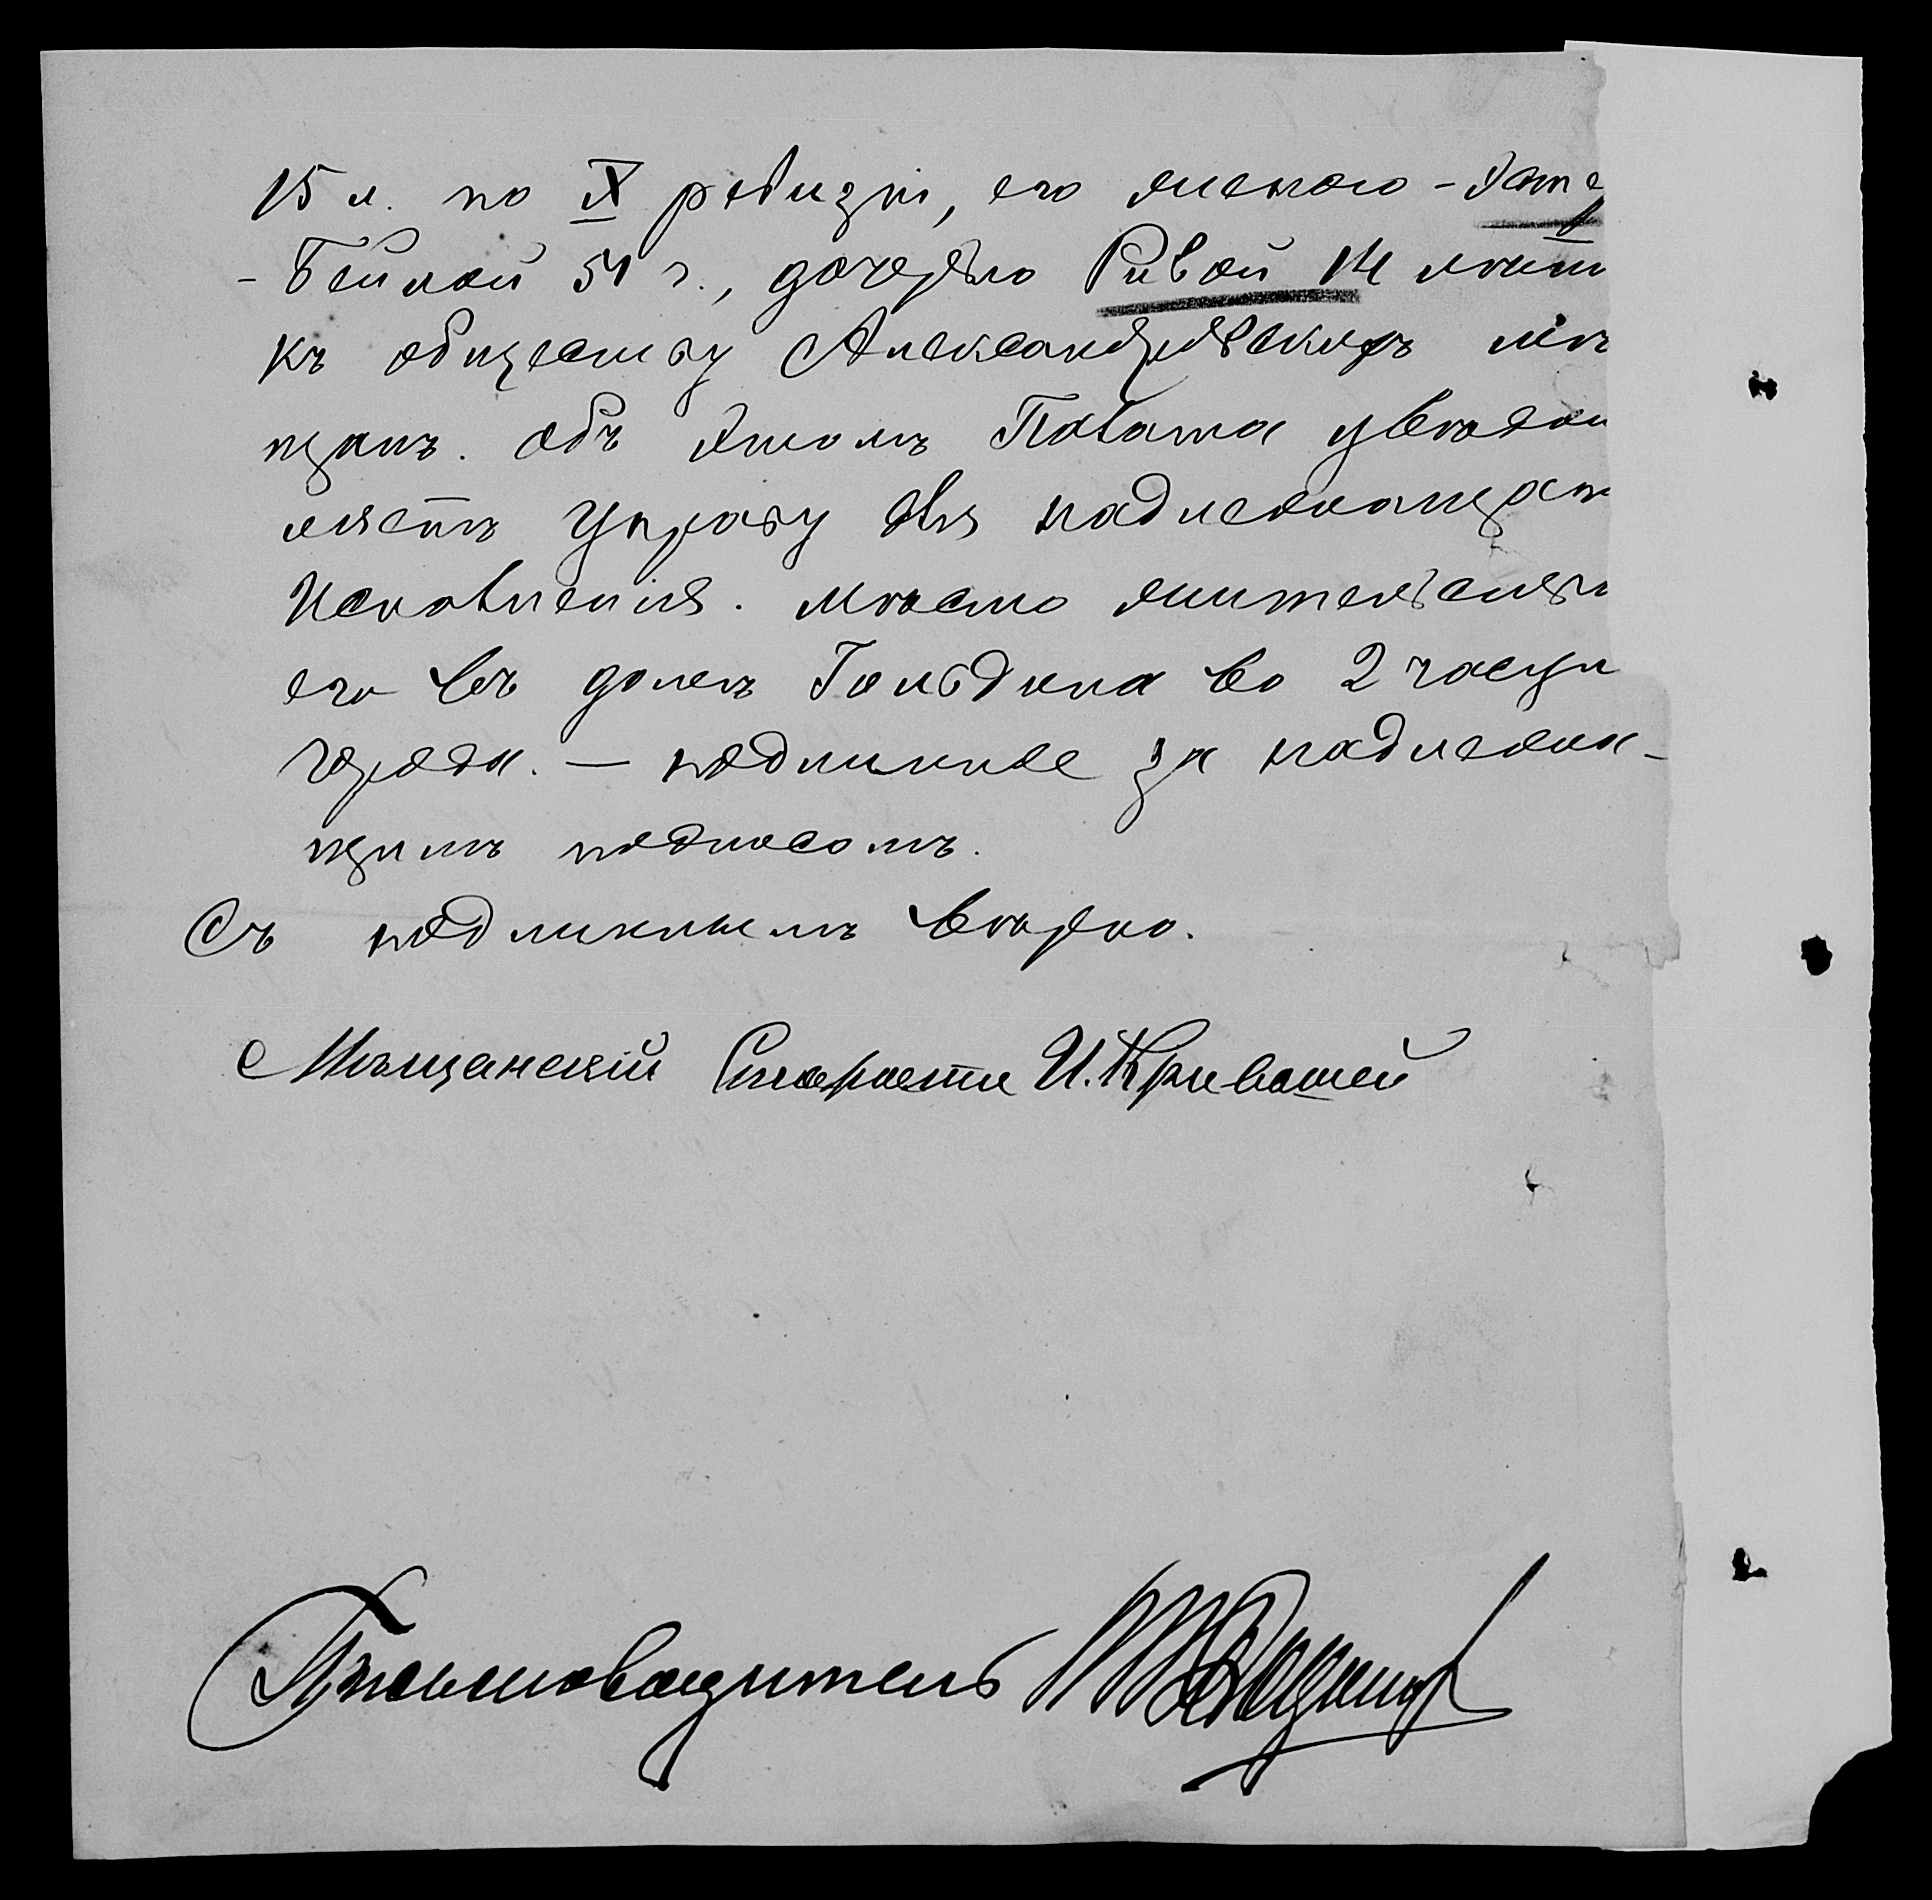 15 л. по IX ревизіи, его женою -
- Бейлой 51 г., дочерью Ривой 14 лѣт
къ обществу Александровскихъ мѣ
щанъ. Объ этомъ Палата увѣдом
ляетъ Управу для надлежащаго
Исполненія. Мѣсто жительства
его въ домѣ Гольдина во 2 части
города. — подлинное за надлежа-
щимъ подписомъ.
Съ подлиннымъ вѣрно.
Мѣщанскій Староста И.
Письмоводитель